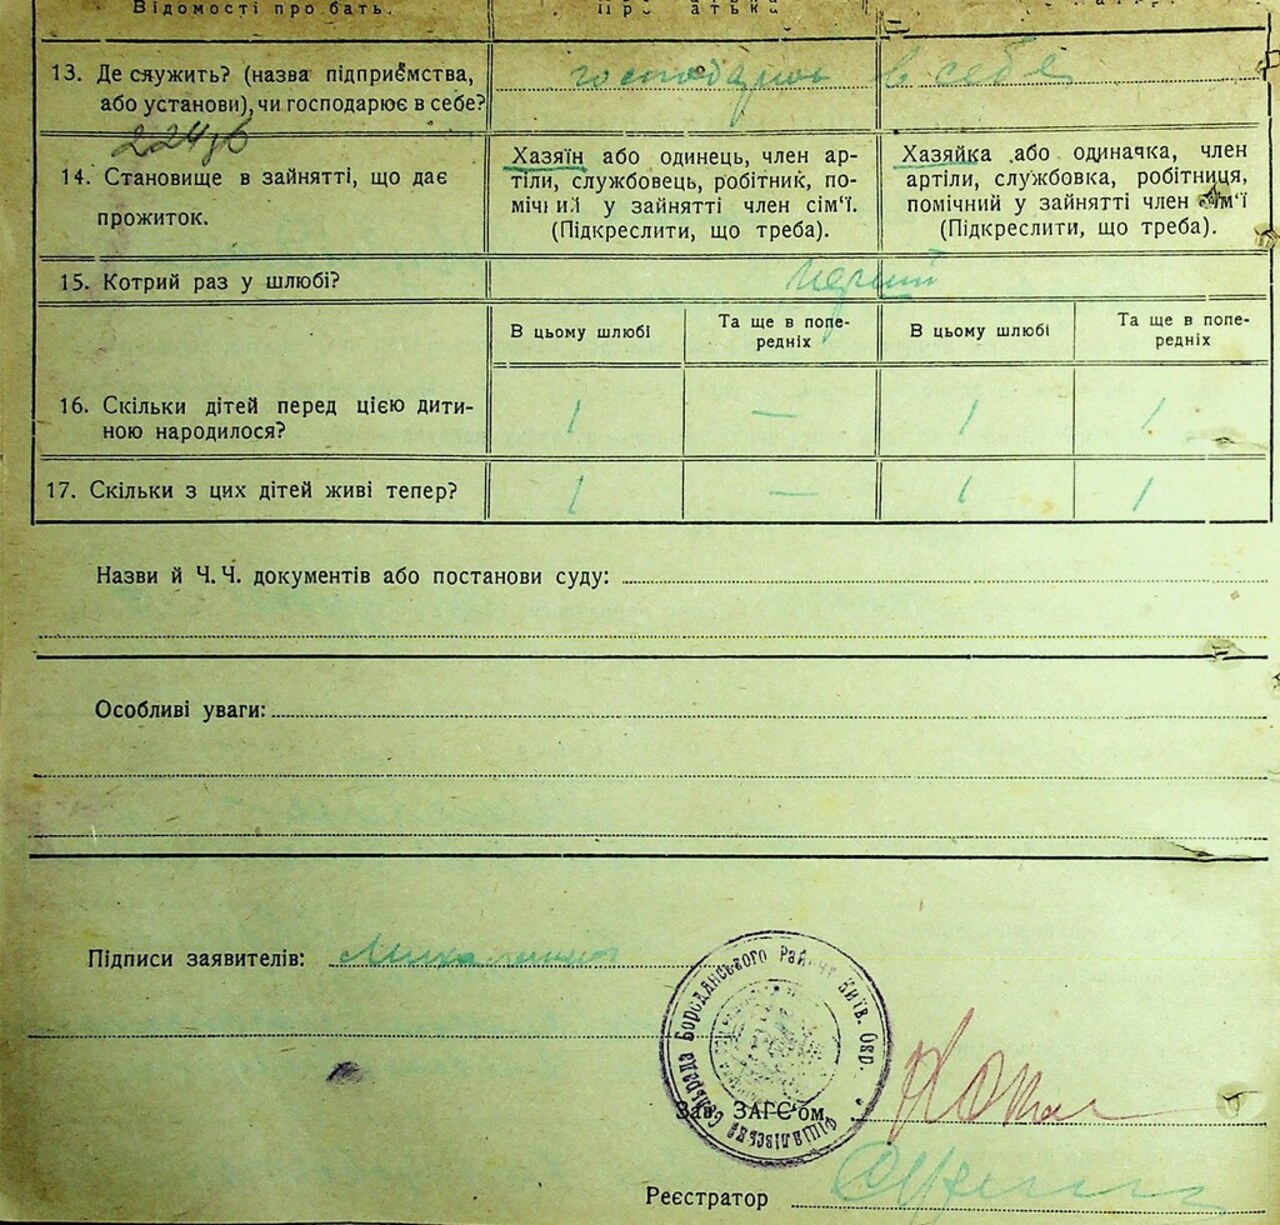 Відомості про бать.
13. Де служить? (назва підприємства,
або установи), чи господарює в себе?
господарює в себе
14. Становище в зайнятті, що дає
прожиток.
Хазяїн або одинець, член ар-
тіли, службовець, робітник, по-
мічний у зайнятті член сім‘ї.
(Підкреслити, що треба).
Хазяйка або одиначка, член
артіли, службовка, робітниця,
помічний у зайнятті член сім‘ї
(Підкреслити, що треба).
15. Котрий раз у шлюбі?
перший
В цьому шлюбі
Та ще в попе-
редніх
В цьому шлюбі
Та ще в попе-
редніх
16. Скільки дітей перед цією дити-
ною народилося?
1 — 1 1
17. Скільки з цих дітей живі тепер?
1 — 1 1
Назви й Ч. Ч. документів або постанови суду:
Особливі уваги:
Підписи заявителів:
Сельрада Бородянського Району Київ. Окр.
Зав. ЗАГС‘ом
Реєстратор